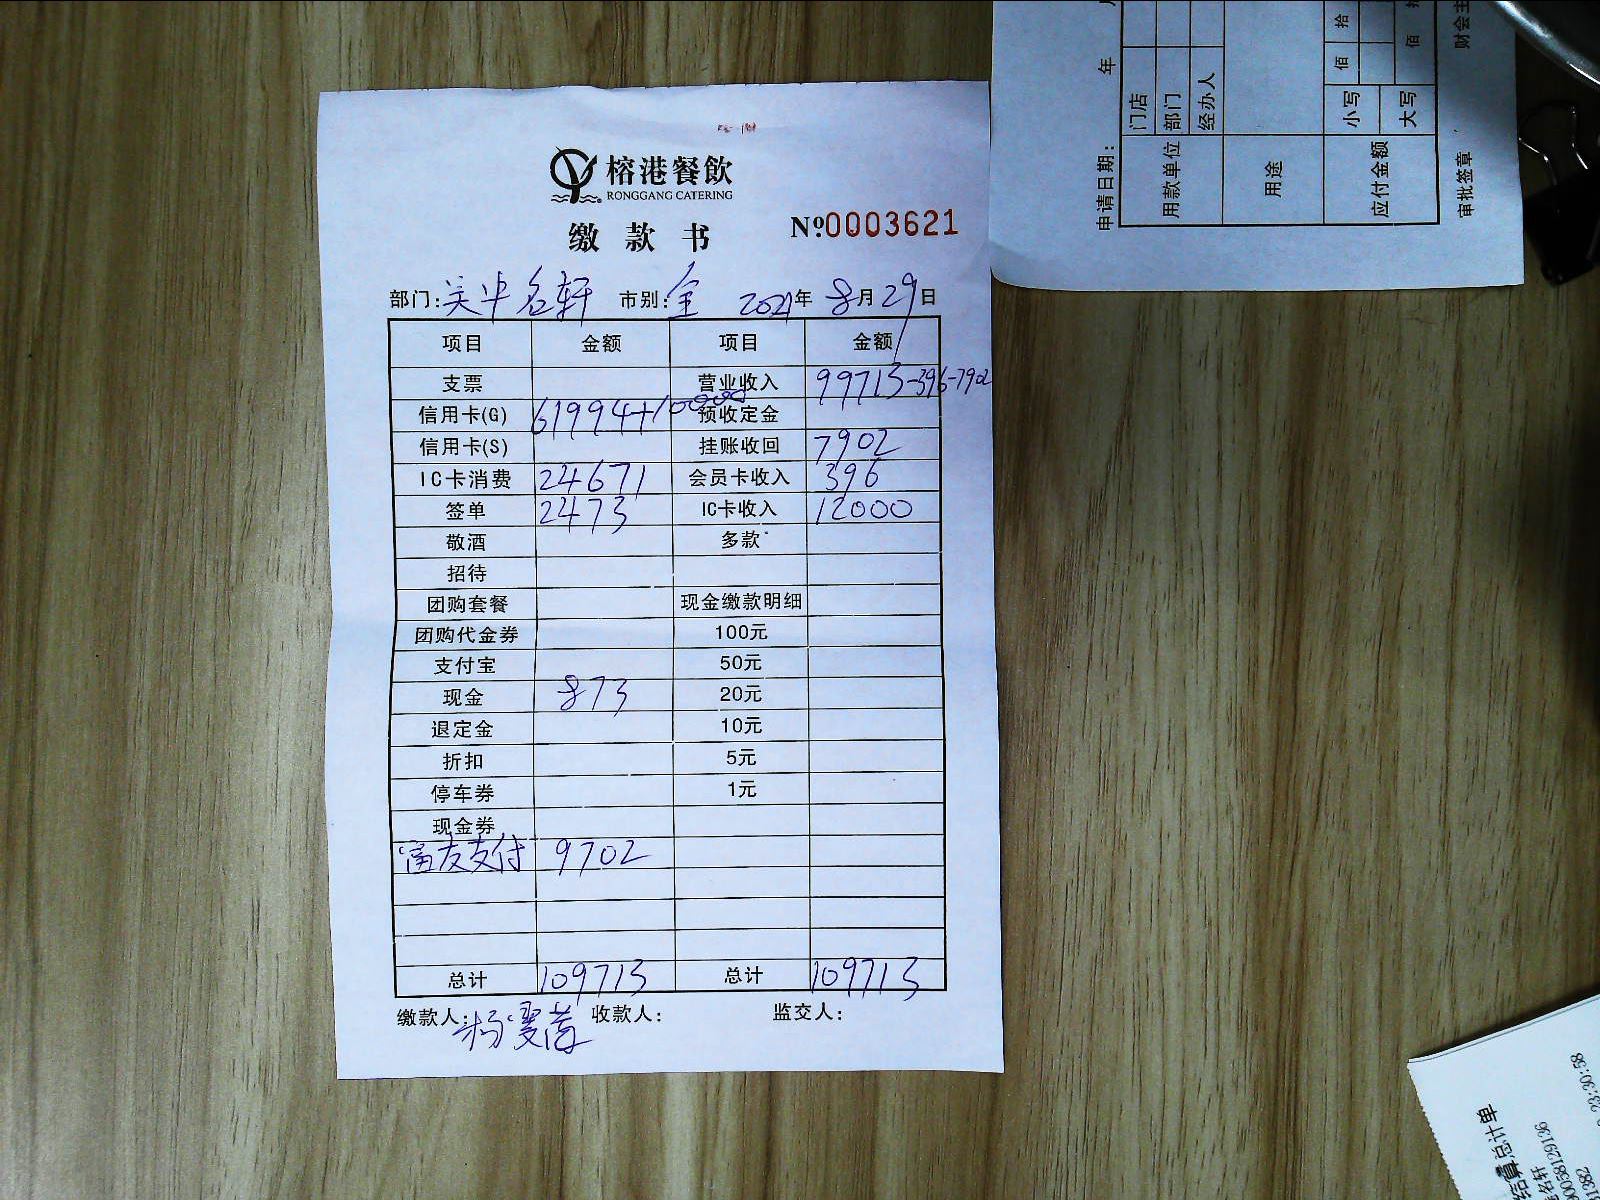 榕港餐飲
RONGGANG CATERING
缴款书 №0003621
部门: 名轩 市别: 全 2021年 8月29日
项目 金额 项目 金额
支票 营业收入 99713-396-7902
信用卡(G) 61994+10000 预收定金
信用卡(S) 挂账收回 7902
IC卡消费 24671 会员卡收入 396
签单 2473 IC卡收入 12000
敬酒 多款
招待
团购套餐 现金缴款明细
团购代金券 100元
支付宝 50元
现金 873 20元
退定金 10元
折扣 5元
停车券 1元
现金券
富友支付 9702
总计 109713 总计 109713
缴款人: 杨 收款人: 监交人:
申请日期: 年
用款单位 门店
部门
经办人
用途
应付金额 小写 佰 拾
大写 佰
审批签章 财会主
结算总计单
名轩
0058129136
1382
23:30:58